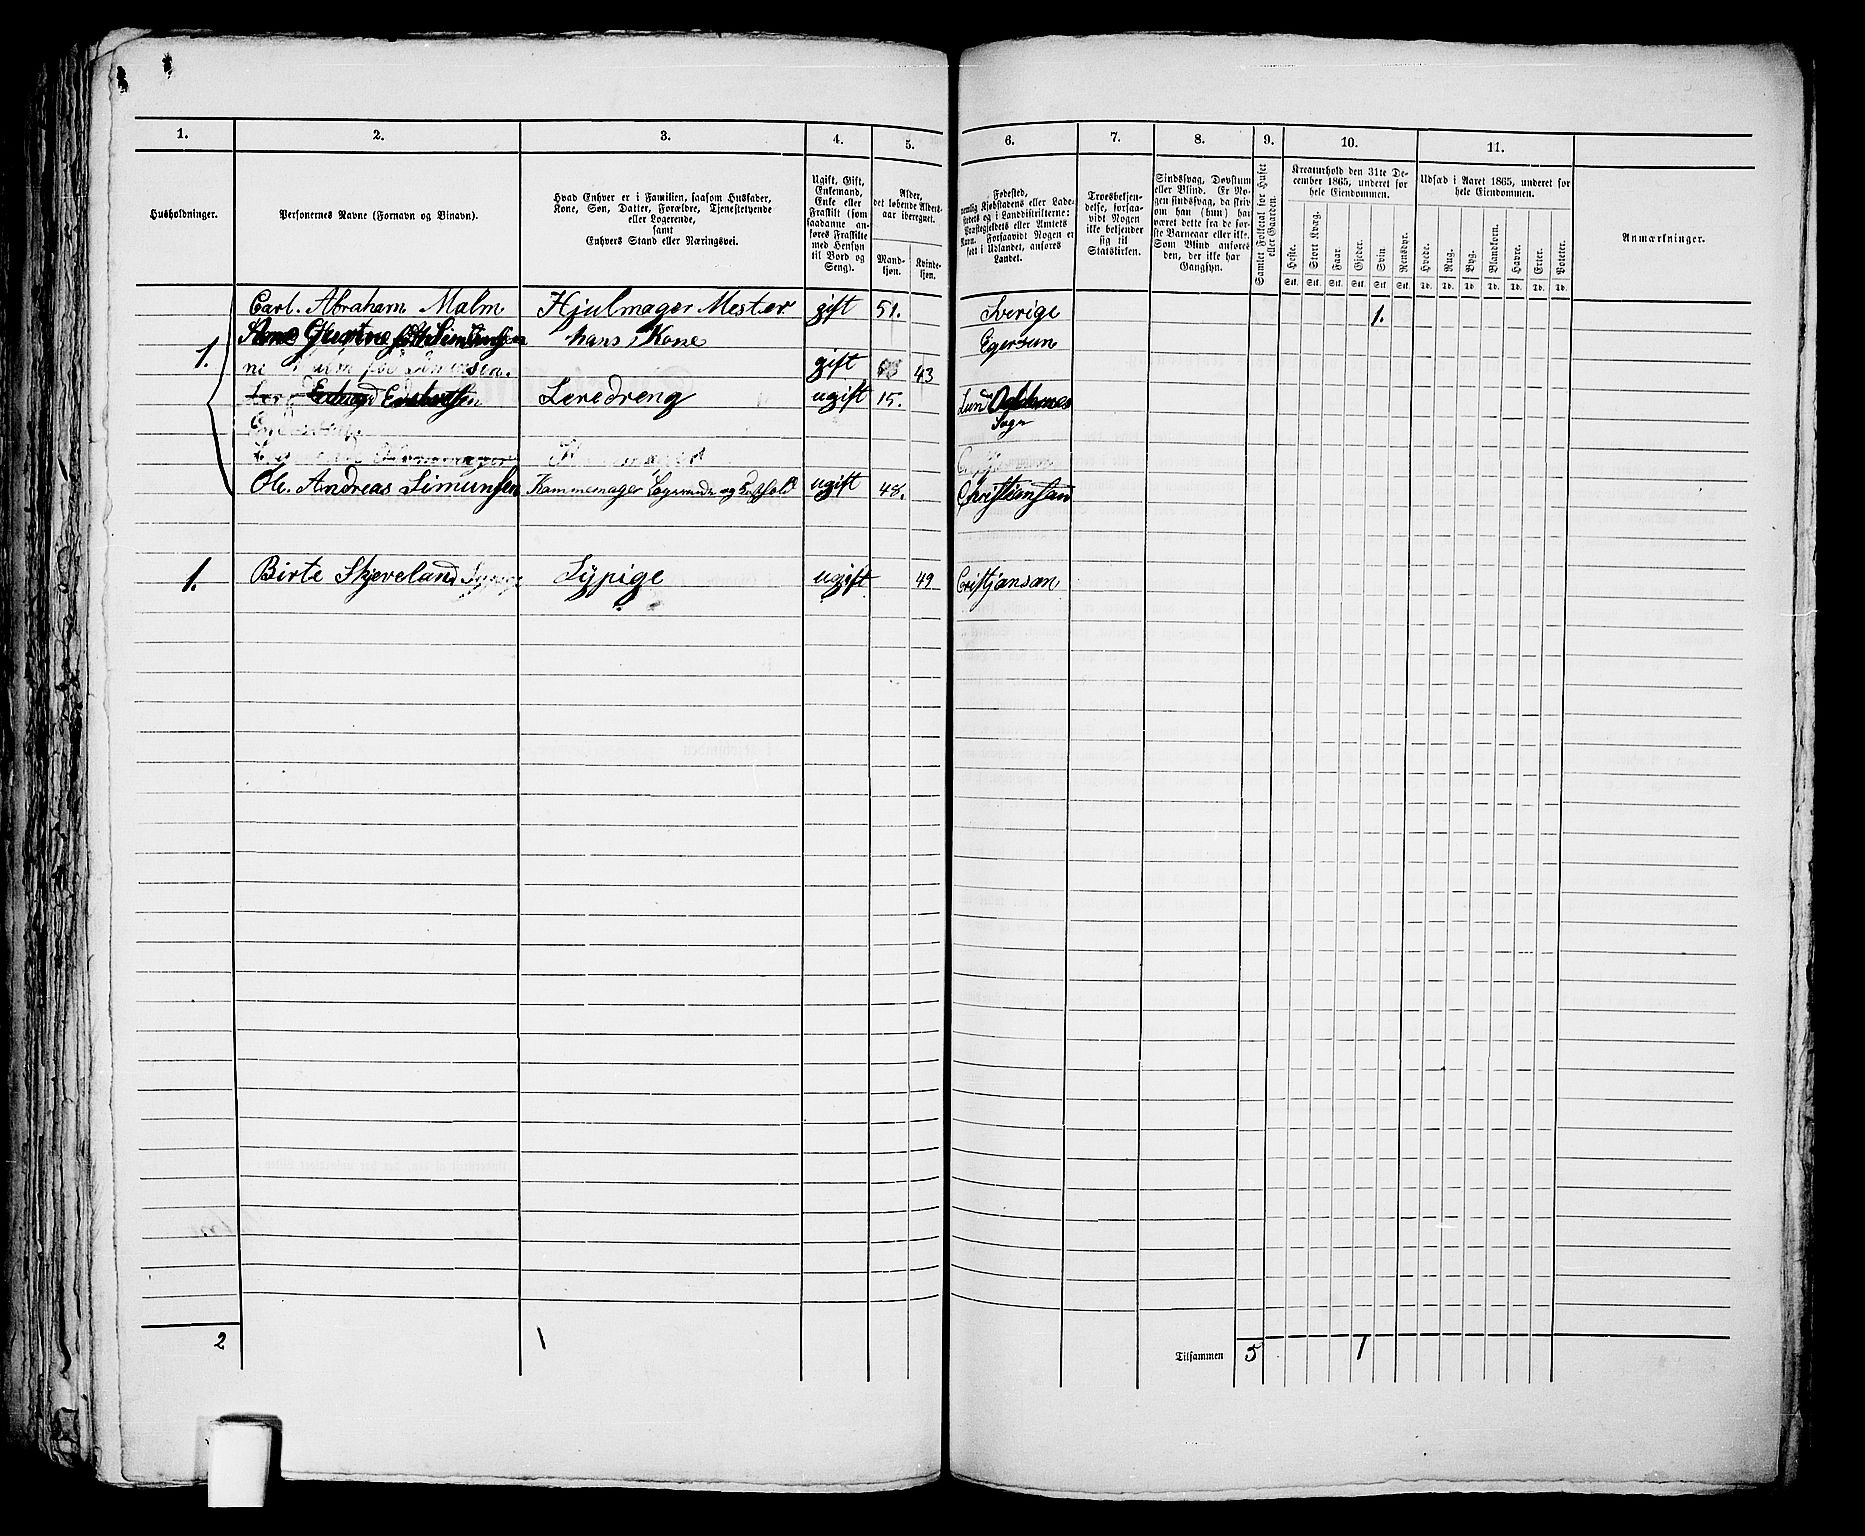 1. 2. 3. 4. 5. 6. 7. 8. 9. 10. 11.
Husholdninger.
Personernes Navne (Fornavn og Tilnavn).
Hvad Enhver er i Familien, saasom Husfader,
Kone, Søn, Datter, Forældre, Tjenestetyende
eller Logerende,
samt
Enhvers Stand eller Næringsvei.
Ugift, Gift,
Enkemand,
Enke eller
Fraskilt (som
saadanne an-
føres Fraskilte
med Hensyn
til Bord og
Seng).
Alder,
det løbende Alders-
aar iberegnet.
Mand-
kjøn.
Kvinde-
kjøn.
Fødested,
nemlig Kjøbstadens eller Lade-
stedets og i Landdistrikterne:
Præstegjeldets eller Amtets
Navn. Forsaavidt Nogen er
født i Udlandet, anføres
Landet.
Troesbekjen-
delse, forsaa-
vidt Nogen
ikke bekjender
sig til
Statskirken.
Sindssvag, Døvstum
eller Blind. Er No-
gen sindssvag, da skriv
om han (hun) har
været dette fra de før-
ste Barneaar eller ikke.
Som Blind anføres
den, der ikke har
Gangsyn.
Samlet Folketal for Huset
eller Gaarden.
Kreaturhold den 31te De-
cember 1865, underet for
hele Eiendommen.
Heste. Stort Kvæg. Faar. Gjeder. Svin. Rensdyr.
Stk. Stk. Stk. Stk. Stk. Stk.
Udsæd i Aaret 1865, underet for
hele Eiendommen.
Hvede. Rug. Byg. Blandkorn. Havre. Erter. Poteter.
Td. Td. Td. Td. Td. Td. Td.
Anmærkninger.
Carl. Abraham Malm Hjulmager Mester gift 51. Sverige 1.
hans Kone Egersun
1. gift 43
Leredreng ugift 15. Lun
Sogn
Ole. Andreas Simunsen Kammemager ugift 48. Christiansan
1. Birte Skjeveland Sypige ugift 49 Cristjansan
2 1 Tilsammen 5 1